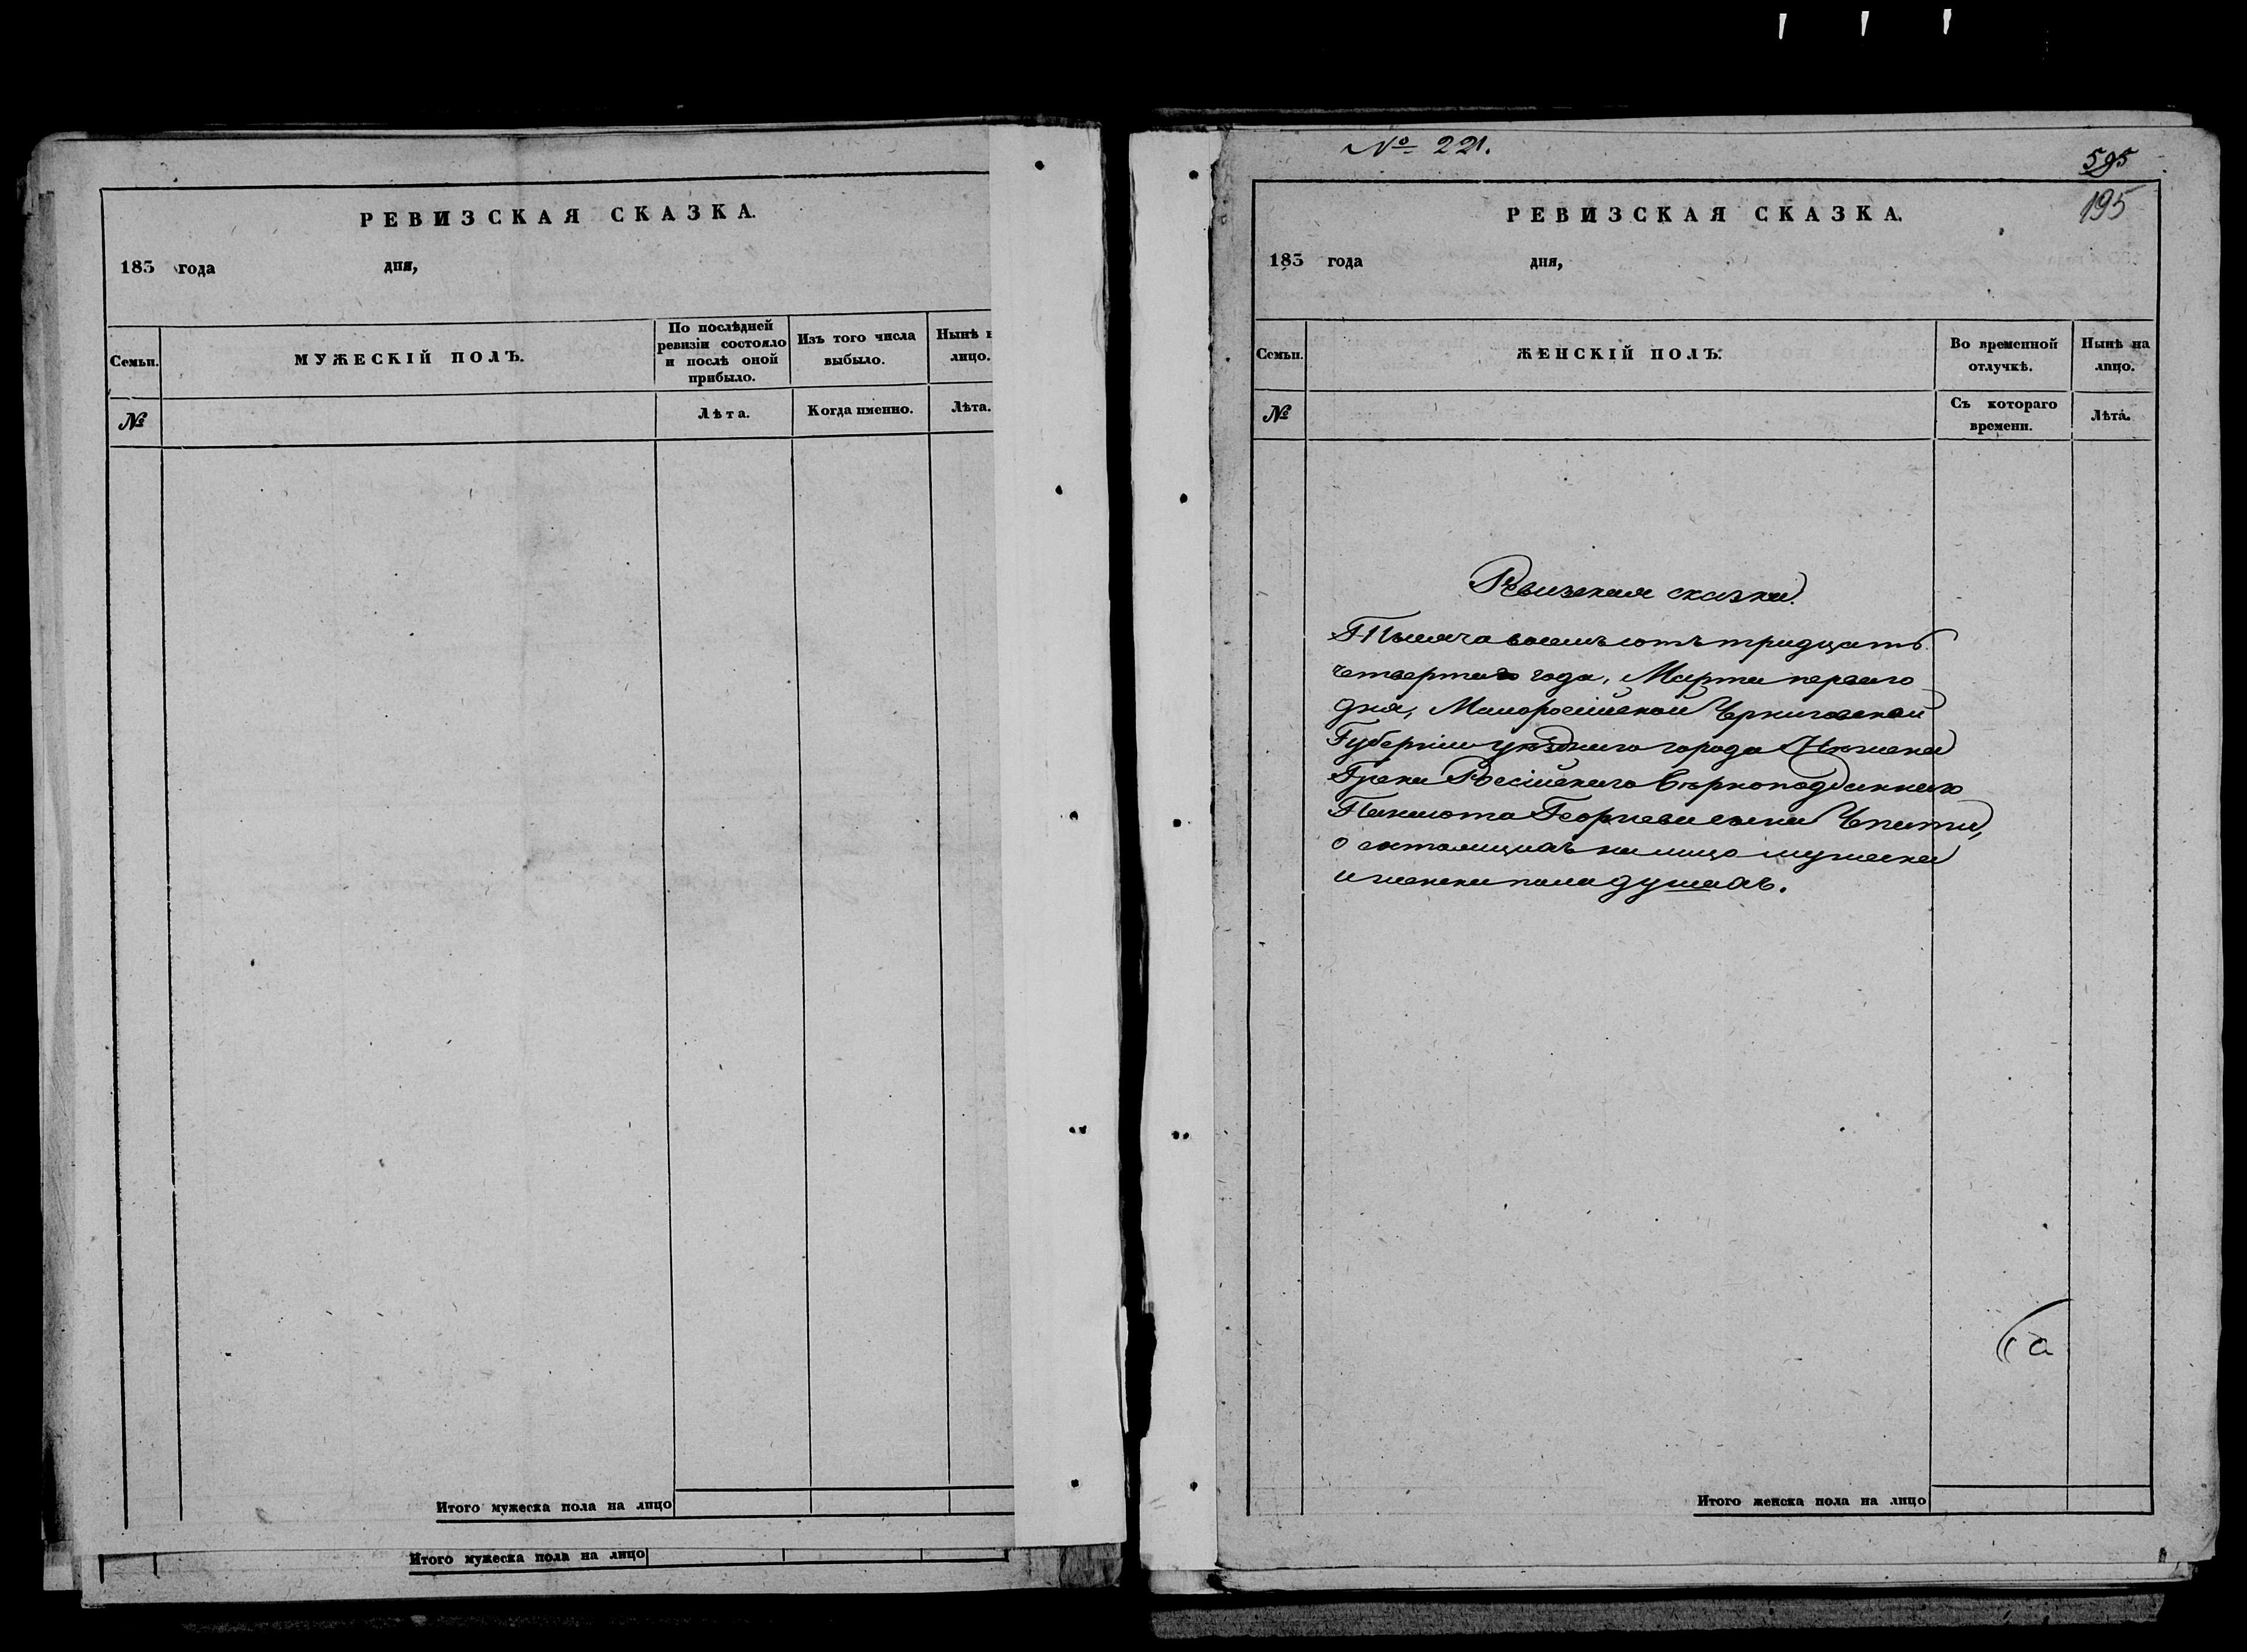 РЕВИЗСКАЯ СКАЗКА.
183 года дня,
Семьи.
МУЖЕСКІЙ ПОЛЪ.
По послѣдней
ревизіи состояло
и послѣ оной
прибыло.
Изъ того числа
выбыло.
Нынѣ н
лицо.
№
Лѣта.
Когда именно.
Лѣта.
Итого мужеска пола на лицо
Итого мужеска пола на лицо
№ 221.
595
195
РЕВИЗСКАЯ СКАЗКА.
183 года дня,
Семьи.
ЖЕНСКІЙ ПОЛЪ.
Во временной
отлучкѣ.
Нынѣ на
лицо.
№
Съ котораго
времени.
Лѣта.
Ревизская сказка.
Тысяча восемьсотъ тридцать
четвертаго года, Марта перваго
дня, Малоросійской Черниговской
Губерніи уѣзднаго города Нѣжина
Грека Російскаго вѣрноподданнаго
Георгиева сына
о состоящихъ на лицо мужеска
и женска пола душахъ.
Итого женска пола на лицо